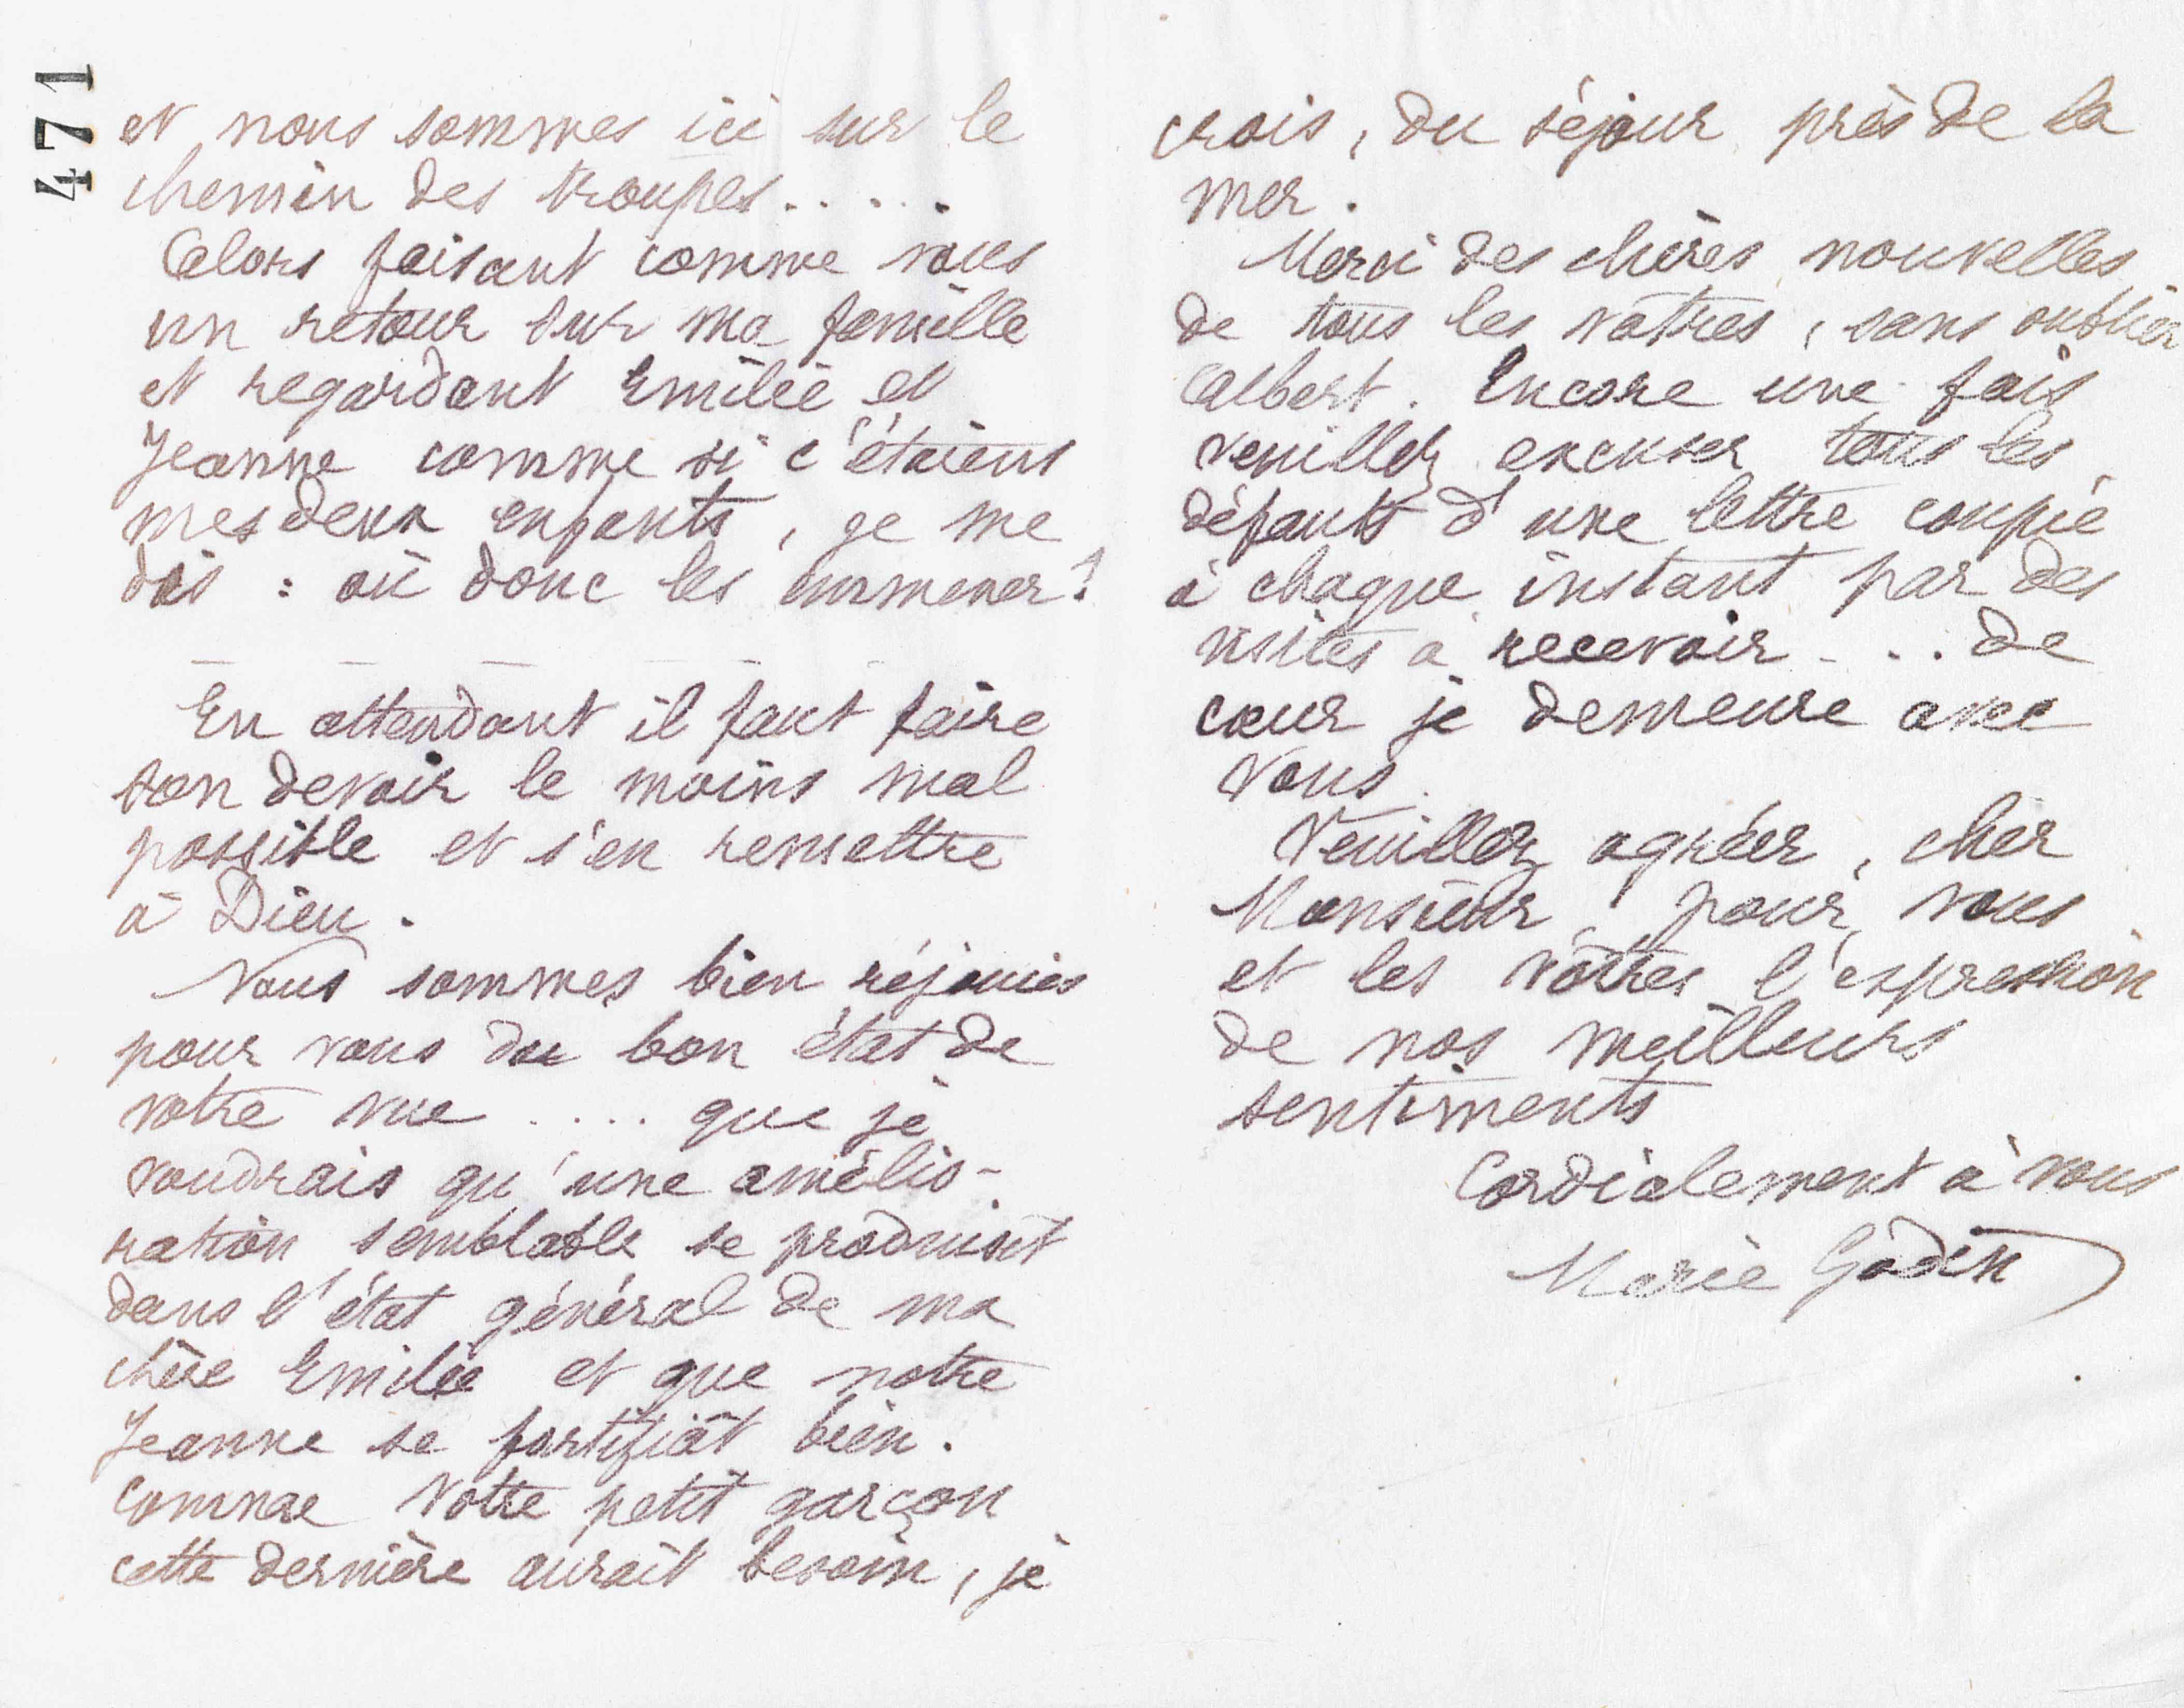 471
et nous sommes ici sur le
chemin des troupes.....
Alors faisant comme vous
un retour sur ma famille
et regardant Emilie et
Jeanne comme si c'étaient
mes deux enfants, je me
dis : où donc les emmener?
_ _ _
En attendant il faut faire
son devoir le moins mal
possible et s'en remettre
à Dieu.
Nous sommes bien réjouies
pour vous du bon état de
votre vue .... que je
voudrais qu'une amélio-
ration semblable se produisit
dans l'état général de ma
chère Emilie et que notre
Jeanne se fortifiât bien.
Comme votre petit garçon
cette dernière aurait besoin, je
crois, du séjour près de la
mer.
Merci des chères nouvelles
de tous les vôtres, sans oublier
Albert. Encore une fois
veuillez excuser tous les
défauts d'une lettre coupée
à chaque instant par des
visites à recevoir ... de
cœur je demeure avec
vous.
Veuillez agréer, cher
Monsieur, pour vous
et les vôtres l'expression
de nos meilleurs
sentiments
Cordialement à vous
Marie Godin